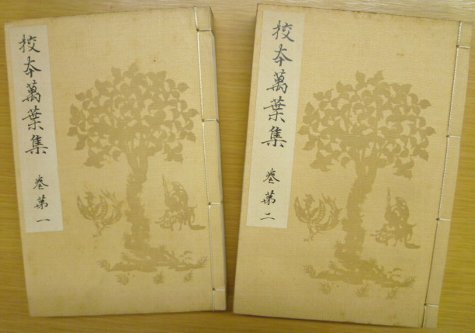 校本萬葉集 巻第一
校本萬葉集 巻第二